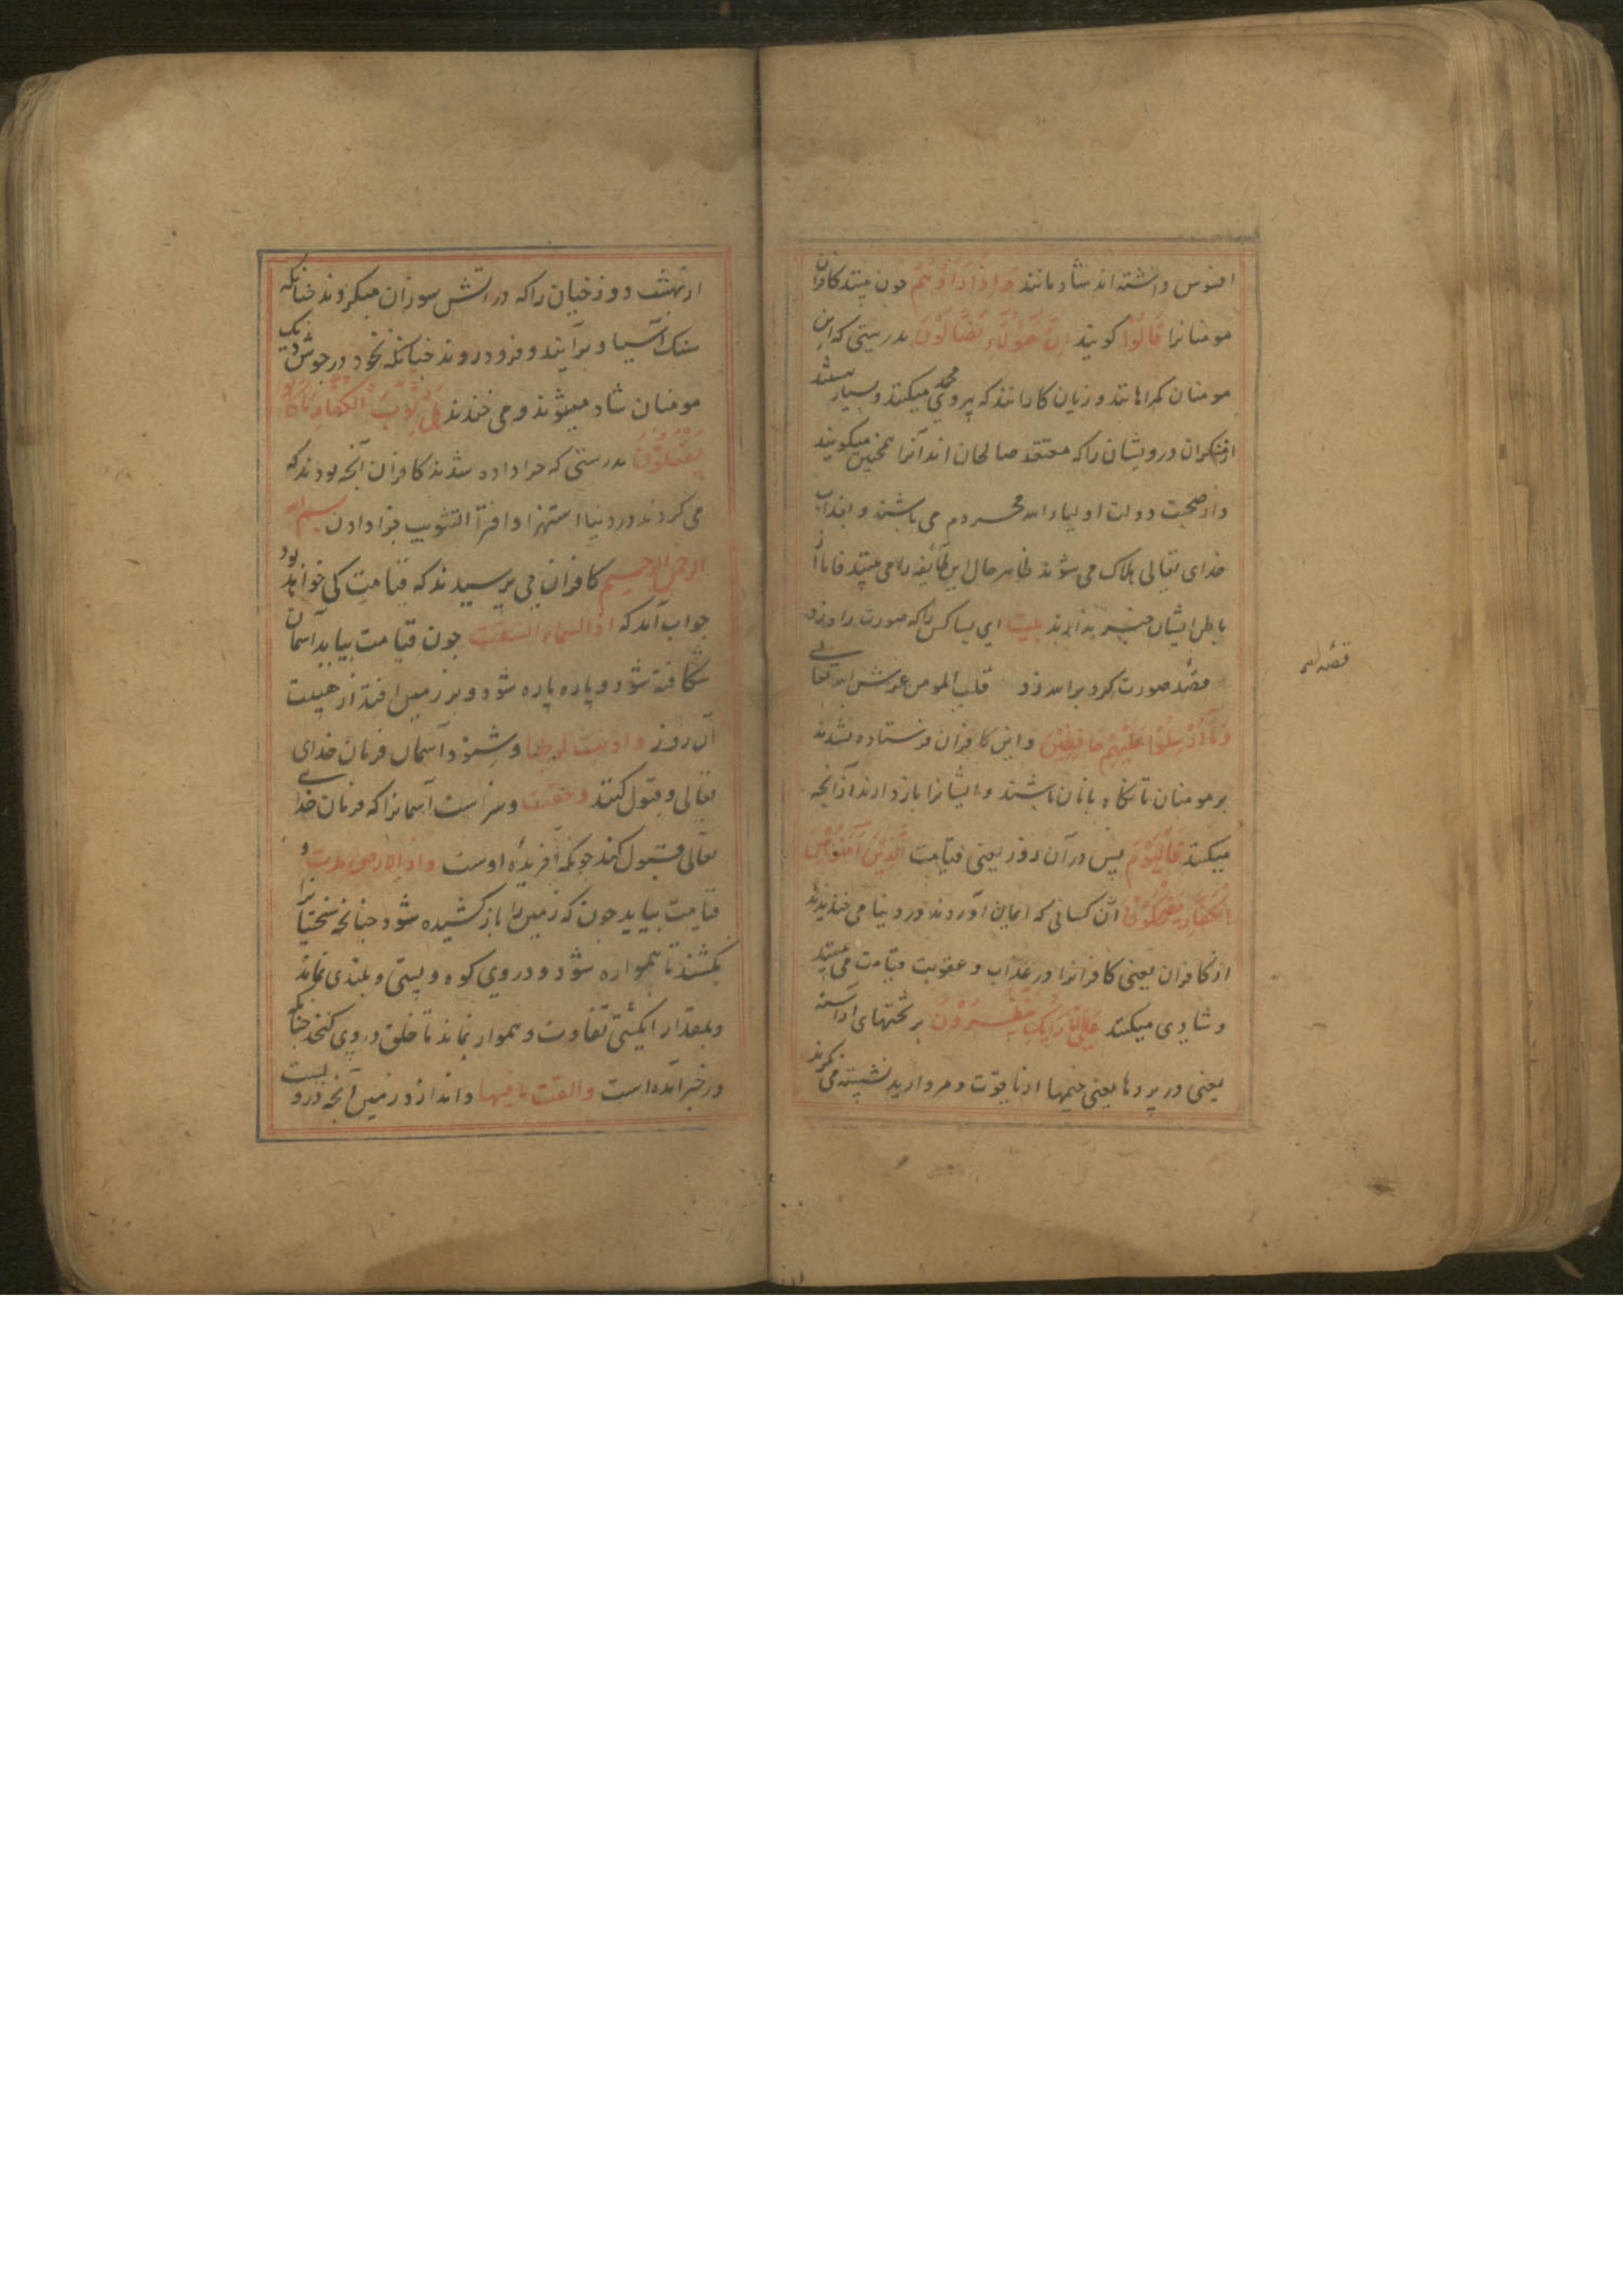 افسوس داشته اند شادمانند وَاِذَا رَاَوْهُمْ چون بینند کافران
مومنانرا قَالُوْا کویند اِنَّ هٰؤُلَاءِ لَضَالُّوْنَ بدرستی که این
مومنان کمراهانند و زیان کارانند که پیروی محمد میکنند و بسیار
درویشان را که معتقد صالحان اند آنرا همچنین میکویند
و از صحبت دولت اولیاء الله محروم می باشند و بعذاب
خدای تعالی هلاک می شوند ظاهر حال این طائفه را می بینند فاما از
باطن ایشان خبر ندارند بیت ای بسا کس را که صورت راه زد
قصد صورت کرد بر الله زد قلب المومن عرش الله تعالی
وَمَا اُرْسِلُوْا عَلَیْهِمْ حَافِظِیْنَ و این کافران فرستاده نشدند
بر مومنان تا نکاه بانان باشند و ایشانرا باز دارند از آنچه
میکنند فَالْیَوْمَ پس در آن روز یعنی قیامت الَّذِیْنَ آمَنُوْا مِنَ
الْکُفَّارِ یَضْحَکُوْنَ آن کسانی که ایمان آوردند در دنیا می خندیدند
از کافران یعنی کافرانرا در عذاب و عقوبت قیامت می بینند
و شادی میکنند عَلَی الْاَرَائِکِ یَنْظُرُوْنَ بر تختهای آراسته
یعنی در پردها یعنی خیمها از یاقوت و مروارید نشسته می نکرند
قصد صد
از بهشت دوزخیان را که در آتش سوزان میکردند چنانکه
سنک آسیا و برآیند و فرو روند چنانکه نخود در جوش دیک
مومنان شاد میشوند و می خندند هَلْ ثُوِّبَ الْکُفَّارُ مَا کَانُوْا
یَفْعَلُوْنَ بدرستی که جزا داده شدند کافران آنچه بودند که
می کردند در دنیا استهزا و افترا التثویب جزا دادن بسم الله
الرحمن الرحیم کافران می پرسیدند که قیامت کی خواهد بود
جواب آمد که اذا السماء انشقت چون قیامت بیاید آسمان
شکافته شود و پاره پاره شود و بر زمین افتد از هیبت
آن روز و اذنت لربها و شنود آسمان فرمان خدای
تعالی و قبول کند و حقت و سزاست آسمانرا که فرمان خدای
تعالی قبول کند چونکه آفریدهٔ اوست و اذا الارض مدت و
قیامت بیاید چون که زمین را باز کشیده شود چنانچه سختیانرا
بکشند تا همواره شود و در وی کوه و پستی و بلندی نماند
و بمقدار انکشتی تفاوت و هموار نماند تا خلق در وی کنجد چنانکه
در خبر آمده است و القت ما فیها و اندازد زمین آنچه در ویست